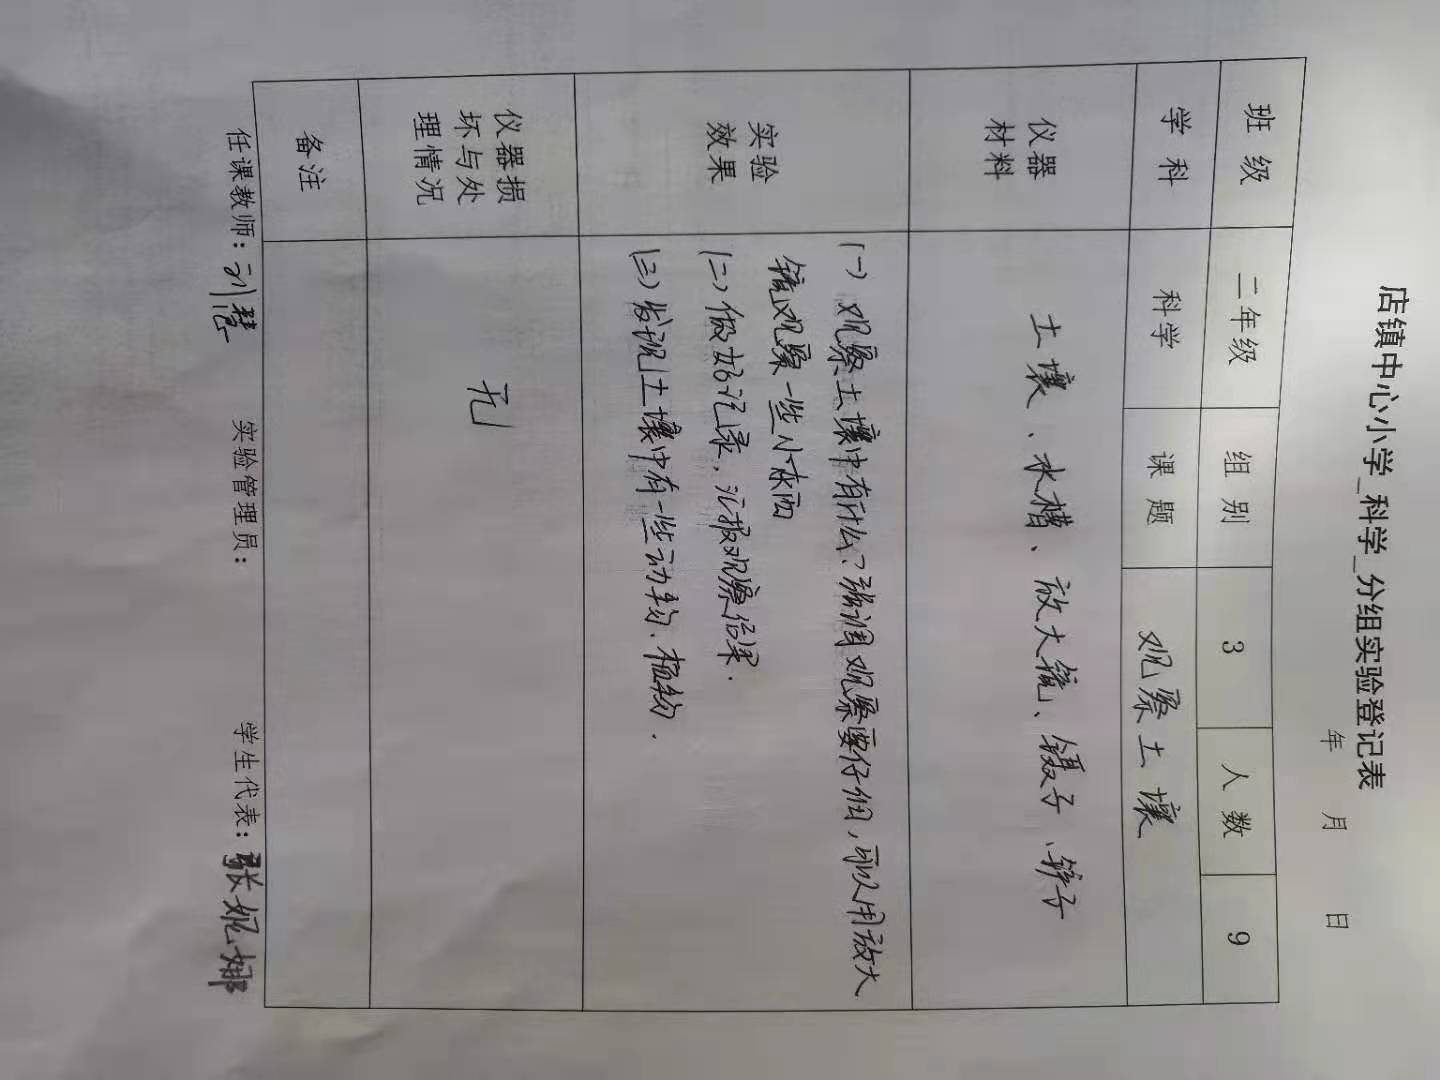 店镇中心小学_科学_分组实验登记表
年 月 日
班级 二年级 组别 3 人数 9
学科 科学 课题 观察土壤
仪器材料 土壤、水槽、放大镜、镊子、铲子
实验效果 (一) 观察土壤中有什么?强调观察要仔细,可以用放大
镜观察一些小东西
(二) 做好记录,汇报观察结果.
(三) 发现土壤中有一些动物、植物.
仪器损坏与处理情况 无
备注
任课教师: 刘慧 实验管理员: 学生代表: 张妮娜